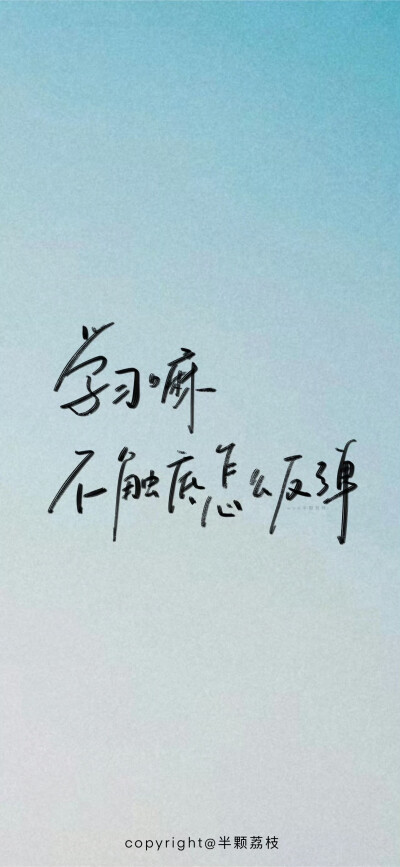 学习嘛
不触底怎么反弹
copyright@半颗荔枝